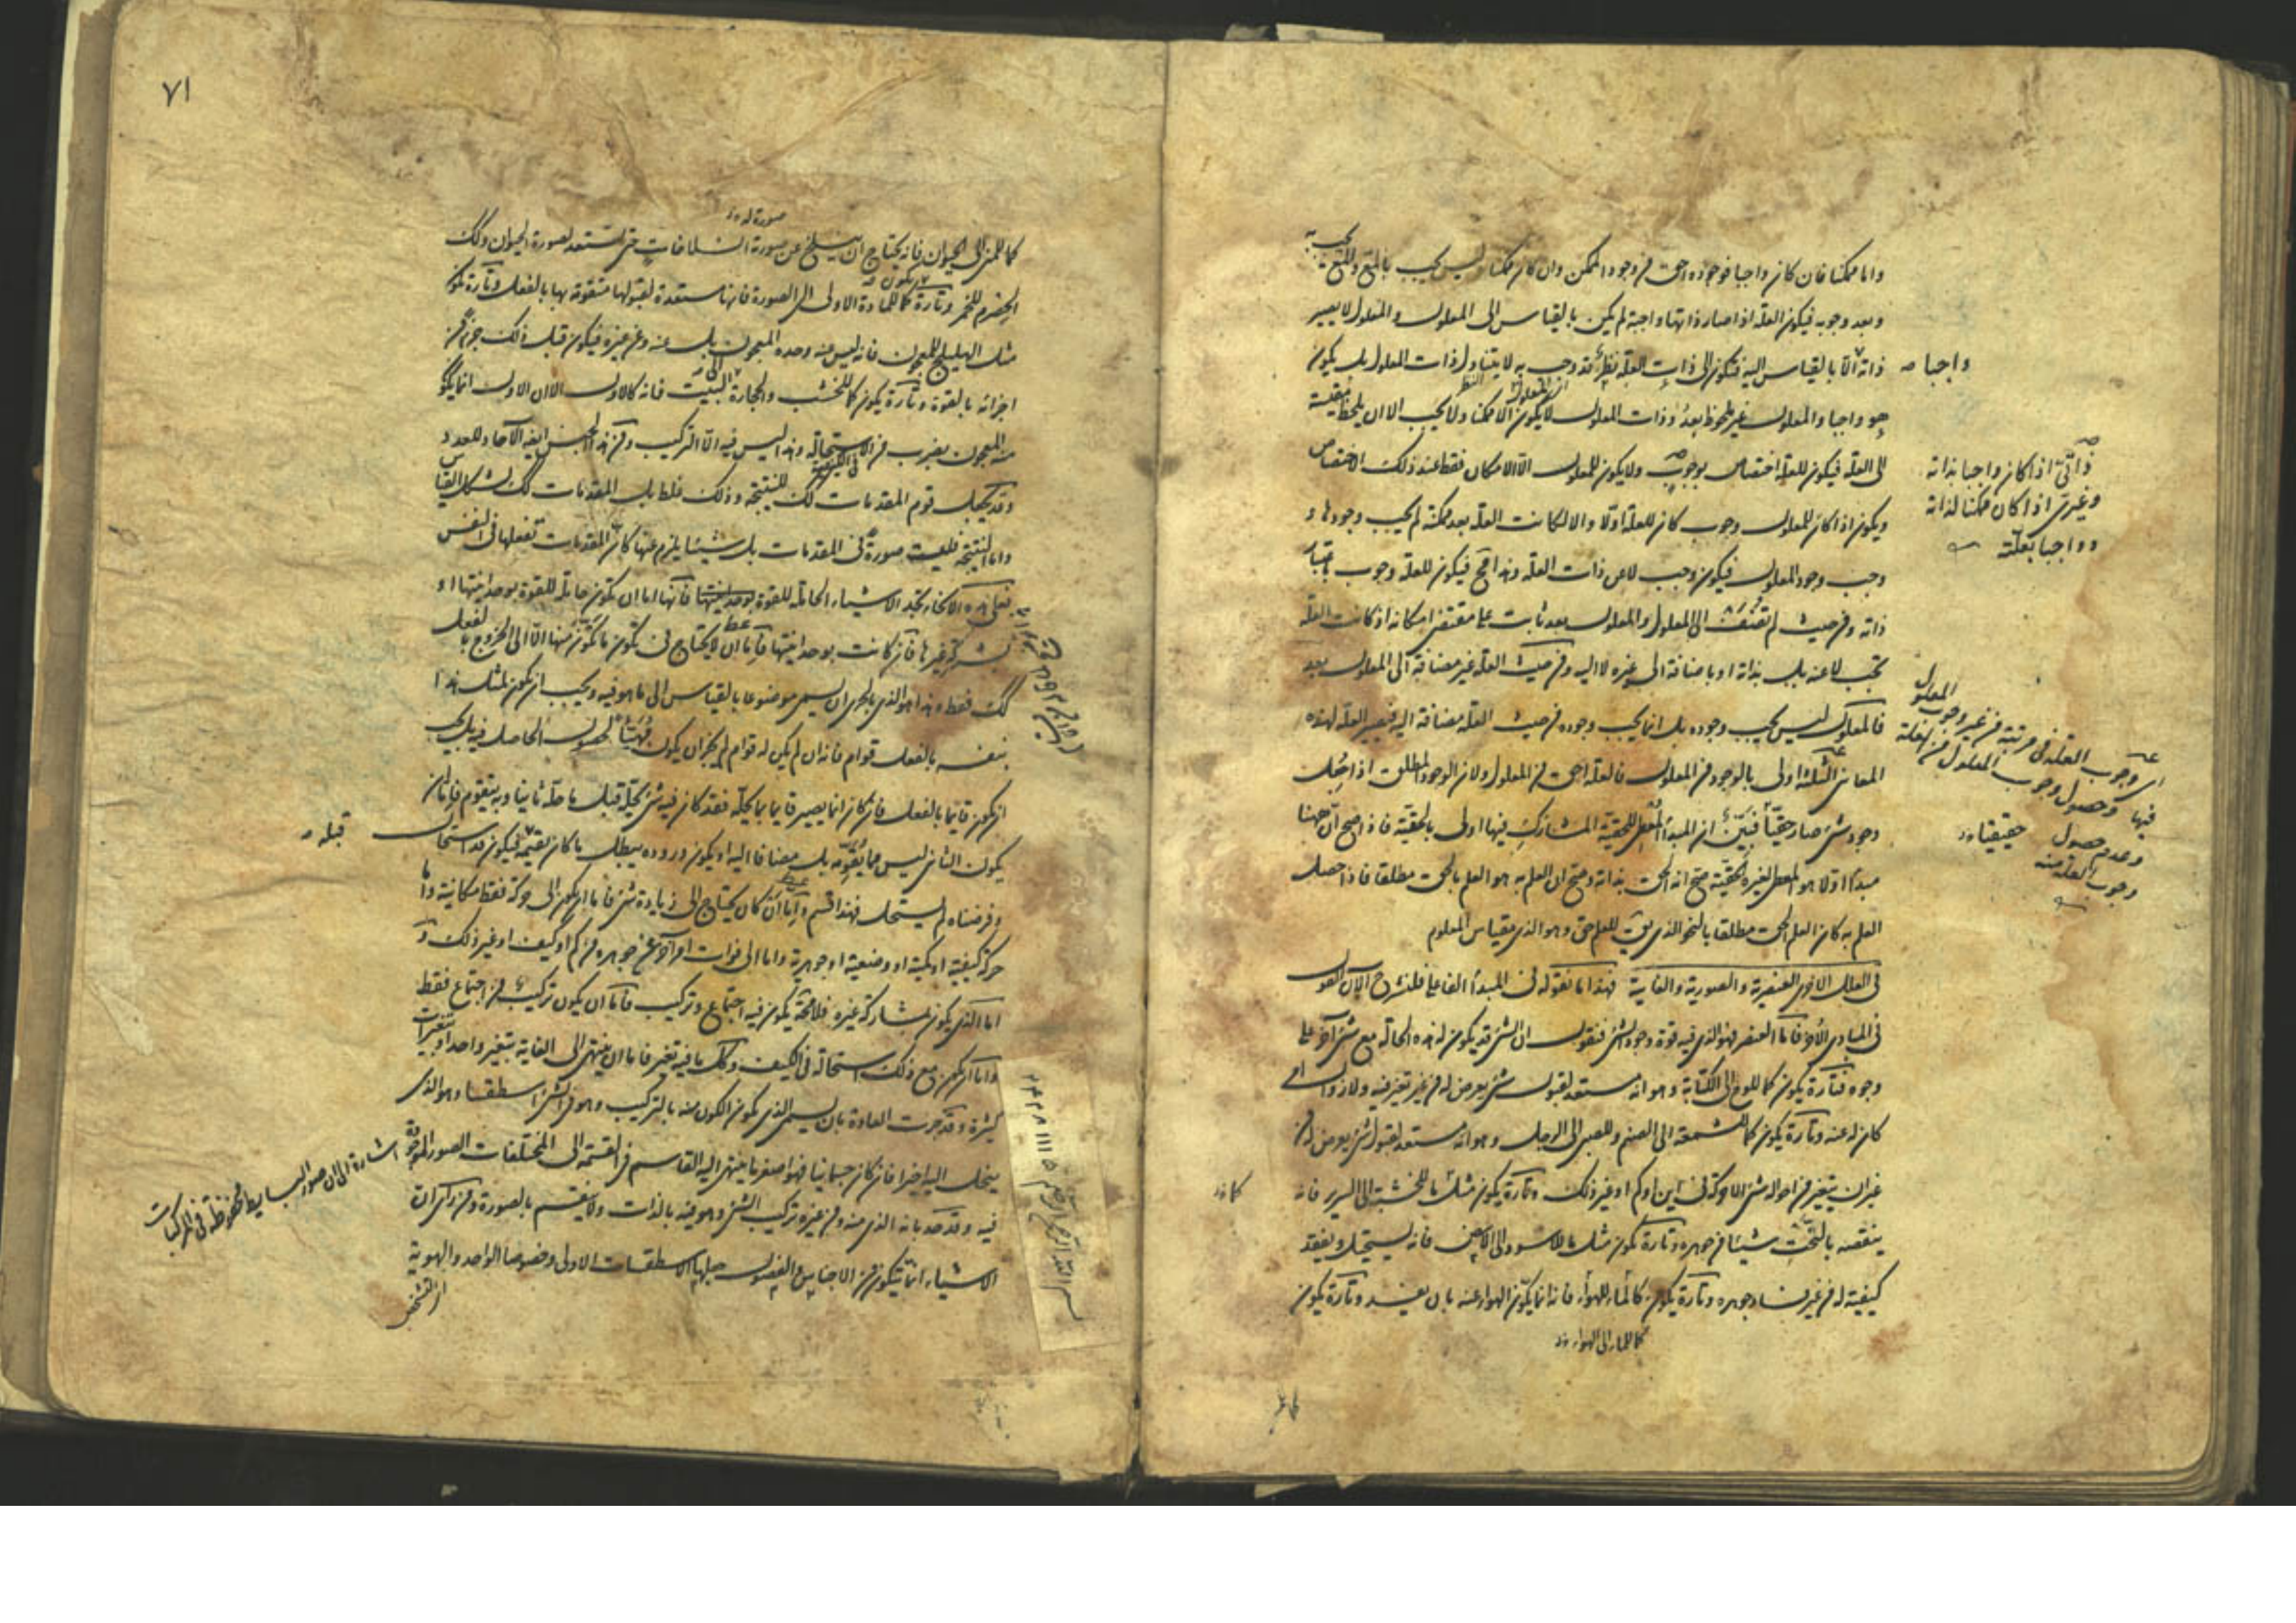 واما ممكنا فان كان واجبا فوجوده احق من وجود الممكن وان كان ممكنا وليس يجب بالمعلول والمعلول يجب به
وبعد وجوبه فيكون العلة اذا صار ذاتها واجبة لم يكن بالقياس الى المعلول والمعلول لا يصير
ذاته الا بالقياس اليه فيكون الى ذات العلة نظر قد وجب به لا يتناول ذات المعلول بل يكون
واجبا
هو واجبا والمعلول غير ملحوظ بعد وذات المعلول لا يكون الا ممكنا ولا يجب الا ان يلحظ مقيسة
الى العلة فيكون للعلة اختصاص بوجوب ولا يكون للمعلول الا الامكان فقط عند ذلك الاختصاص
ذاتي اذا كان واجبا بذاته
وغيري اذا كان ممكنا لذاته
وواجبا بعلته
ويكون اذا كان للمعلول وجوب كان للعلة اولا والا لكانت العلة بعد ممكنة لم يجب وجودها و
وجب وجود المعلول فيكون وجب لا عن ذات العلة وهذا مح فيكون للعلة وجوب باعتبار
ذاته ومن حيث لم تضف الى المعلول والمعلول بعد ثابت على مقتضى امكانه اذ كانت العلة
تجب لا عنه بل بذاته او باضافة الى غيره لا اليه ومن حيث العلة غير مضافة الى المعلول بعد
فالمعلول ليس يجب وجوده بل انما يجب وجوده من حيث العلة مضافة اليه فيصير العلة لهذه
المعاني الثلثة اولى بالوجود من المعلول فالعلة احق من المعلول ولان الوجود المطلق اذا جعل
وجود شئ صار حقيقيا فبين ان المبدأ المعطي للحقيقة المشارك فيها اولى بالحقيقة فاذا صح ان ههنا
حقيقيا
مبدأ اولا هو المعطي لغيره الحقيقة صح انه الحق بذاته وصح ان العلم به هو العلم بالحق مطلقا فاذا حصل
العلم به كان العلم الحق مطلقا بالنحو الذي يق للعلم حق وهو الذي بقياس المعلوم
في العلل الاخرى العنصرية والصورية والغايية فهذا ما نقوله في المبدأ الفاعلي فلنشرح الآن القول
في المبادي الاخرى فاما العنصر فهو الذي فيه قوة وجود الشئ فنقول ان الشئ قد يكون له هذه الحالة مع شئ آخر على
وجوه فتارة يكون كما للوح الى الكتابة وهو انه مستعد لقبول شئ يعرض له من غير تغير فيه ولا زوال امر
كان له عنه وتارة يكون كما للشمعة الى الصنم وللصبي الى الرجل وهو انه مستعد لقبول شئ يعرض له من
غير ان يتغير من احواله شئ الا حركة في اين او كم او غير ذلك وتارة يكون مثل ما للخشبة الى السرير فانه
ينقصه بالنحت شيئا من جوهره وتارة يكون مثل ما للاسود الى الابيض فانه يستحيل ويفقد
كيفيته له من غير فساد جوهره وتارة يكون كالماء للهواء فانه انما يكون الهواء عنه بان يفسد وتارة يكون
كما للماء الى الهواء
٧١
صورة له
كما للمني الى الحيوان فانه يحتاج ان ينسلخ عن صورة انسلاخات حتى تستعد لصورة الحيوان وكذلك
الحصرم للخمر وتارة كما للمادة الاولى الى الصورة فانها مستعدة لقبولها متقومة بها بالفعل وتارة يكون
مثل الهليلج للمعجون فانه ليس عنه وحده المعجون بل عنه وعن غيره فيكون قبل ذلك جزءا من
اجزائه بالقوة وتارة يكون كما للخشب والحجارة الى البيت فانه كالاول الا ان الاول انما يكون
منه المعجون بضرب من الاستحالة وهذا ليس فيه الا التركيب ومن هذا الجنس ايضا الآحاد للعدد
وقد يجعل قوم المقدمات كك للنتيجة وذلك غلط بل المقدمات كك لشكل القياس
واما النتيجة فليست صورة في المقدمات بل شيئا يلزم عنها كان المقدمات تفعلها في النفس
فعلى هذه الانحاء تجد الاشياء الحاملة للقوة فانها اما ان تكون حاملة للقوة بوحدانيتها او
بشركة غيرها فان كانت بوحدانيتها فاما ان لا يحتاج في تكون ما يكون منها الا الى الخروج بالفعل
كك فقط وهذا هو الذي بالحري ان يسمى موضوعا بالقياس الى ما هو فيه ويجب ان يكون لمثل هذا
بنفسه بالفعل قوام فانه ان لم يكن له قوام لم يجز ان يكون مهيئا لحصول الحاصل فيه بل يجب
ان يكون قائما بالفعل فان كان انما يصير قايما بما يحله فقد كان فيه شئ يحله قبل ما حله ثانيا وبه يتقوم فاما ان
يكون الثاني ليس مما يقومه بل مضافا اليه او يكون وروده يبطل ما كان يقيمه فيكون قد استحال
قبله
وفرضناه لم يستحل فهذا قسم واما ان كان يحتاج الى زيادة شئ فاما ان يكون الى حركة فقط مكانية واما
حركة كيفية او كمية او وضعية او جوهرية واما الى فوات امر آخر عن جوهره من كم او كيف او غير ذلك و
اما الذي يكون بمشاركة غيره فلا محة يكون فيه اجتماع وتركيب فاما ان يكون تركيب من اجتماع فقط
واما ان يكون مع ذلك استحالة في الكيف وكل ما فيه تغير فاما ان ينتهي الى الغاية بتغير واحد او بتغيرات
كثيرة وقد جرت العادة بان يسمى الذي يكون الكون منه بالتركيب وهو في الشئ اسطقسا وهو الذي
ينحل اليه اخيرا فان كان جسمانيا فهو اصغر ما ينتهي اليه القاسم في القسمة الى المختلفات الصور الموجودة
اشارة الى ان صور البسايط محفوظة في المركبات
فيه وقد حد بانه الذي منه ومن غيره تركيب الشئ وهو فيه بالذات ولا ينقسم بالصورة ومن رأى ان
الاشياء انما يتكون من الاجناس والفصول جعلها الاسطقسات الاولى وخصوصا الواحد والهوية